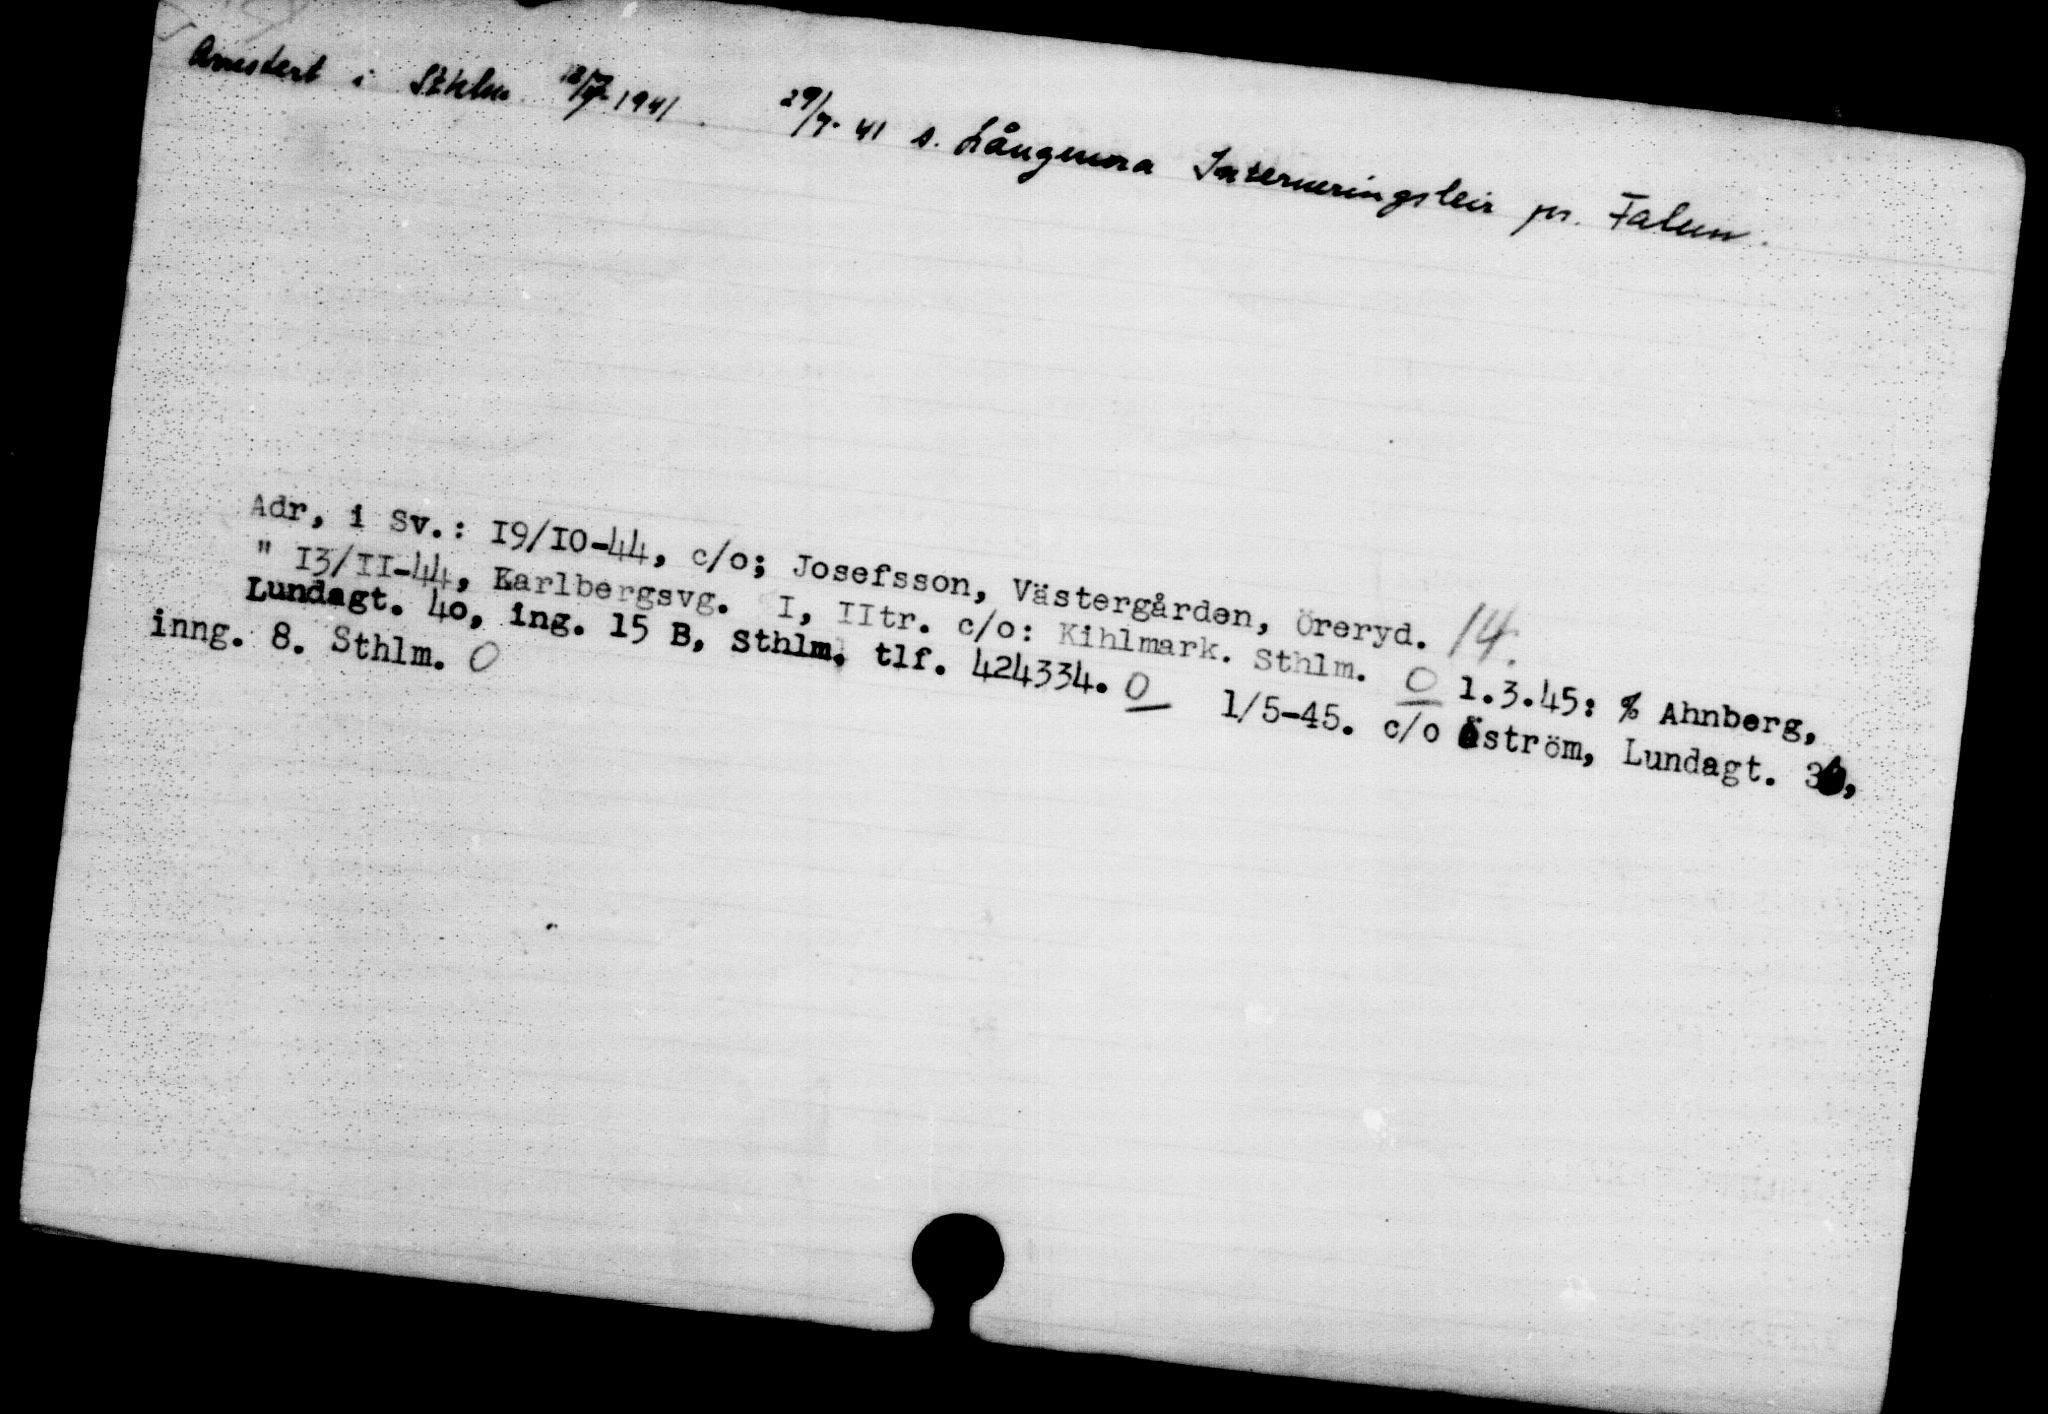 Arrestert i Sthlm. 12/7-1941. 29/7-41 s. Långmora Interneringsleir pr. Falun.
Adr, i Sv.: 19/10-44, c/o; Josefsson, Västergården, Öreryd. 14.
" 13/11-44, Karlbergsvg. I, IItr. c/o: Kihlmark. Sthlm. O 1.3.45: % Ahnberg,
Lundagt. 40, ing. 15 B, Sthlm, tlf. 424334. O 1/5-45. c/o Öström, Lundagt. 36,
inng. 8. Sthlm. O